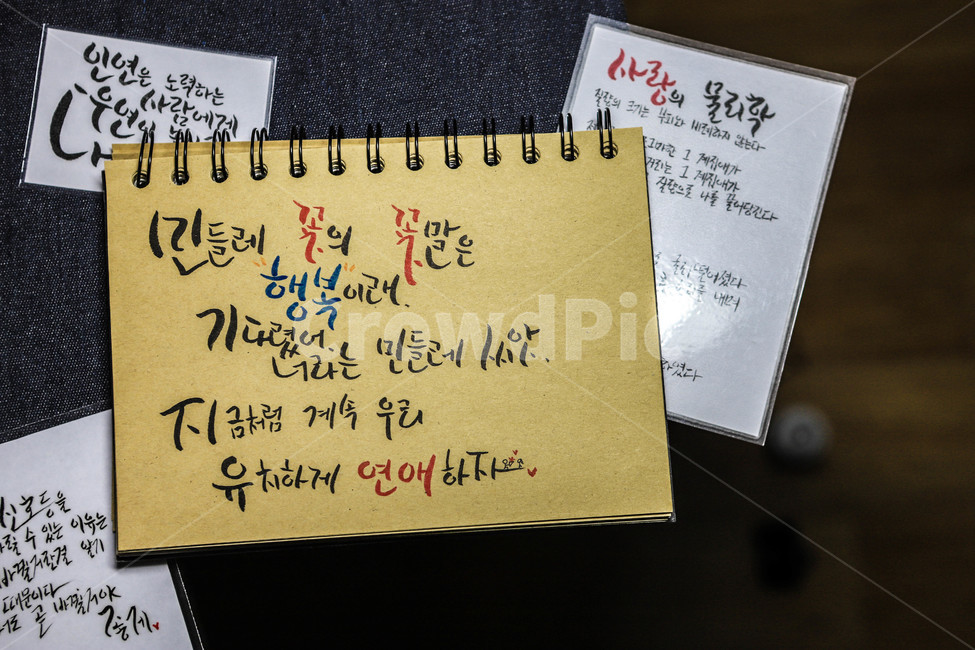 인연은 노력하는
우연의
사람에게
민들레 꽃의 꽃말은
"행복"이래.
기다렸어.
너라는 민들레 씨앗..
지금처럼 계속 우리
유치하게 연애하자
사랑의 물리학
질량의 크기는 부피와 비례하지 않는다
그 계집애가
그 계집애가
질량으로 나를 끌어당긴다
떨어졌다
신호등을
수 있는 이유는
바뀔거란걸 알기
때문이다
곧 바뀔거야
CrowdPic